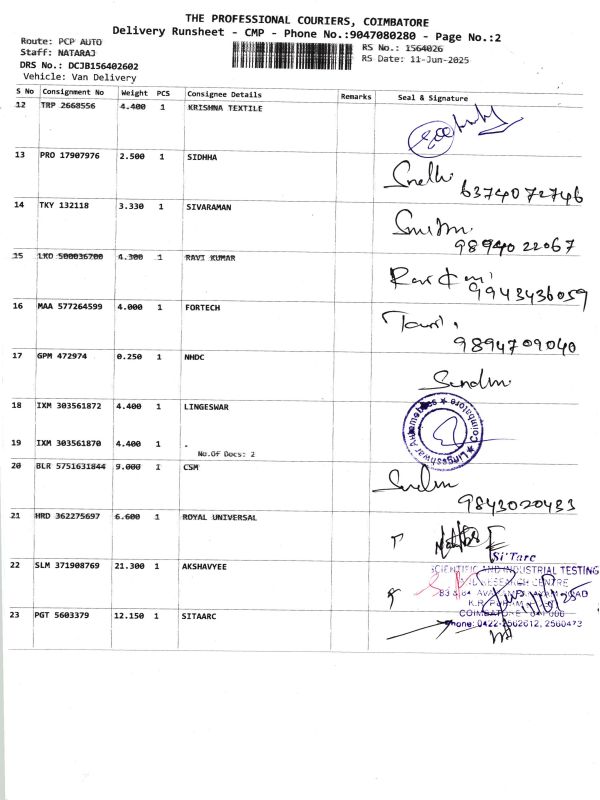 THE PROFESSIONAL COURIERS, COIMBATORE
Delivery Runsheet - CMP - Phone No.:9047080280 - Page No.:2
Route: PCP AUTO
Staff: NATARAJ
DRS No.: DCJB156402602
Vehicle: Van Delivery
RS No.: 1564026
RS Date: 11-Jun-2025
S No Consignment No Weight PCS Consignee Details Remarks Seal & Signature
12 TRP 2668556 4.400 1 KRISHNA TEXTILE
13 PRO 17907976 2.500 1 SIDHHA
6374072746
14 TKY 132118 3.330 1 SIVARAMAN
9894022067
15 LKO 500036700 4.300 1 RAVI KUMAR
9943436059
16 MAA 577264599 4.000 1 FORTECH
9894709040
17 GPM 472974 0.250 1 NHDC
18 IXM 303561872 4.400 1 LINGESWAR
19 IXM 303561870 4.400 1 .
No.Of Docs: 2
20 BLR 5751631844 9.000 1 CSM
9843020433
21 HRD 362275697 6.600 1 ROYAL UNIVERSAL
22 SLM 371908769 21.300 1 AKSHAVYEE
23 PGT 5603379 12.150 1 SITAARC
Coimbatore
Si'Tarc
SCIENTIFIC AND INDUSTRIAL TESTING
RESEARCH CENTRE
Phone: 0422-2562612, 2560473